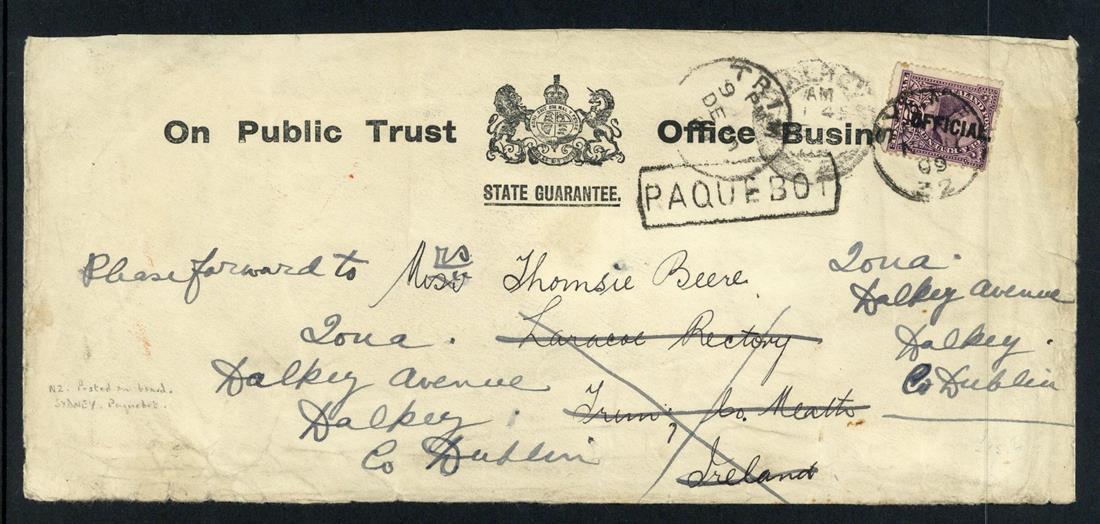 On Public Trust Office Busin
STATE GUARANTEE.
TRIM
9 PM
DE
AM
OFFICIAL
09
PAQUEBOT
Please forward to Mrs Thomsie Beere
Laracor Rectory
Trim, Co. Meath
Ireland
Iona.
Dalkey Avenue
Dalkey
Co Dublin
Iona.
Dalkey Avenue
Dalkey.
Co Dublin
NZ. Posted on board.
SYDNEY. Paquebot.